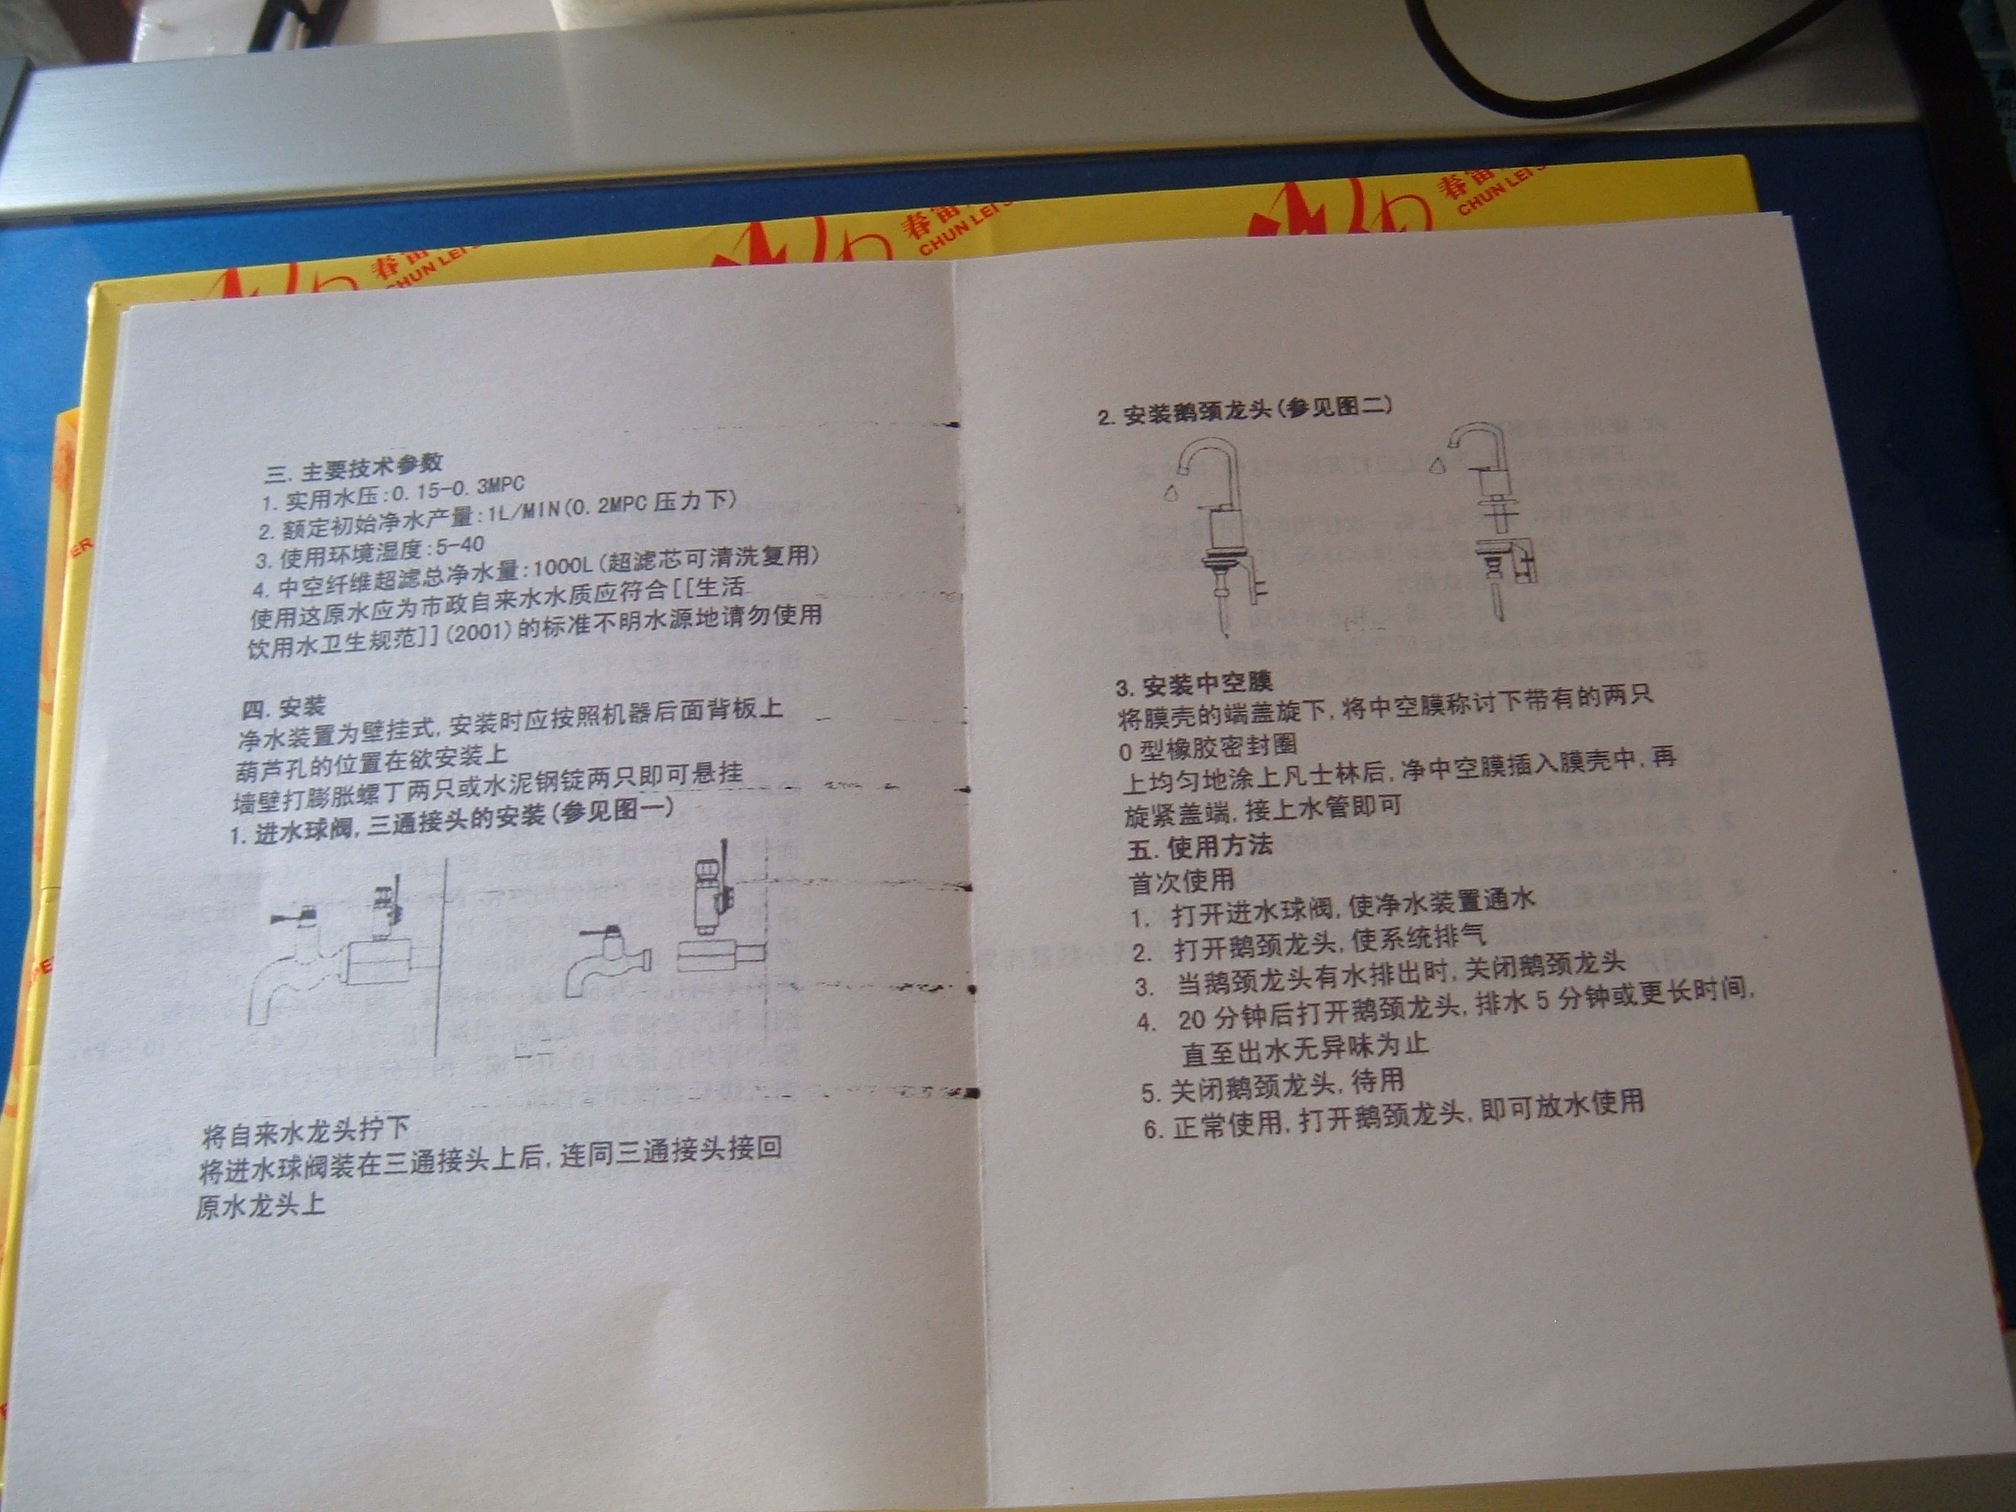 春雷
CHUN LEI
春雷
CHUN LEI
春雷
CHUN LEI
三.主要技术参数
1.实用水压:0.15-0.3MPC
2.额定初始净水产量:1L/MIN(0.2MPC压力下)
3.使用环境湿度:5-40
4.中空纤维超滤总净水量:1000L(超滤芯可清洗复用)
使用这原水应为市政自来水水质应符合[[生活
饮用水卫生规范]](2001)的标准不明水源地请勿使用
四.安装
净水装置为壁挂式,安装时应按照机器后面背板上
葫芦孔的位置在欲安装上
墙壁打膨胀螺丁两只或水泥钢锭两只即可悬挂
1.进水球阀,三通接头的安装(参见图一)
将自来水龙头拧下
将进水球阀装在三通接头上后,连同三通接头接回
原水龙头上
2.安装鹅颈龙头(参见图二)
3.安装中空膜
将膜壳的端盖旋下,将中空膜称讨下带有的两只
O型橡胶密封圈
上均匀地涂上凡士林后,净中空膜插入膜壳中,再
旋紧盖端,接上水管即可
五.使用方法
首次使用
1. 打开进水球阀,使净水装置通水
2. 打开鹅颈龙头,使系统排气
3. 当鹅颈龙头有水排出时,关闭鹅颈龙头
4. 20分钟后打开鹅颈龙头,排水5分钟或更长时间,
直至出水无异味为止
5.关闭鹅颈龙头,待用
6.正常使用,打开鹅颈龙头,即可放水使用